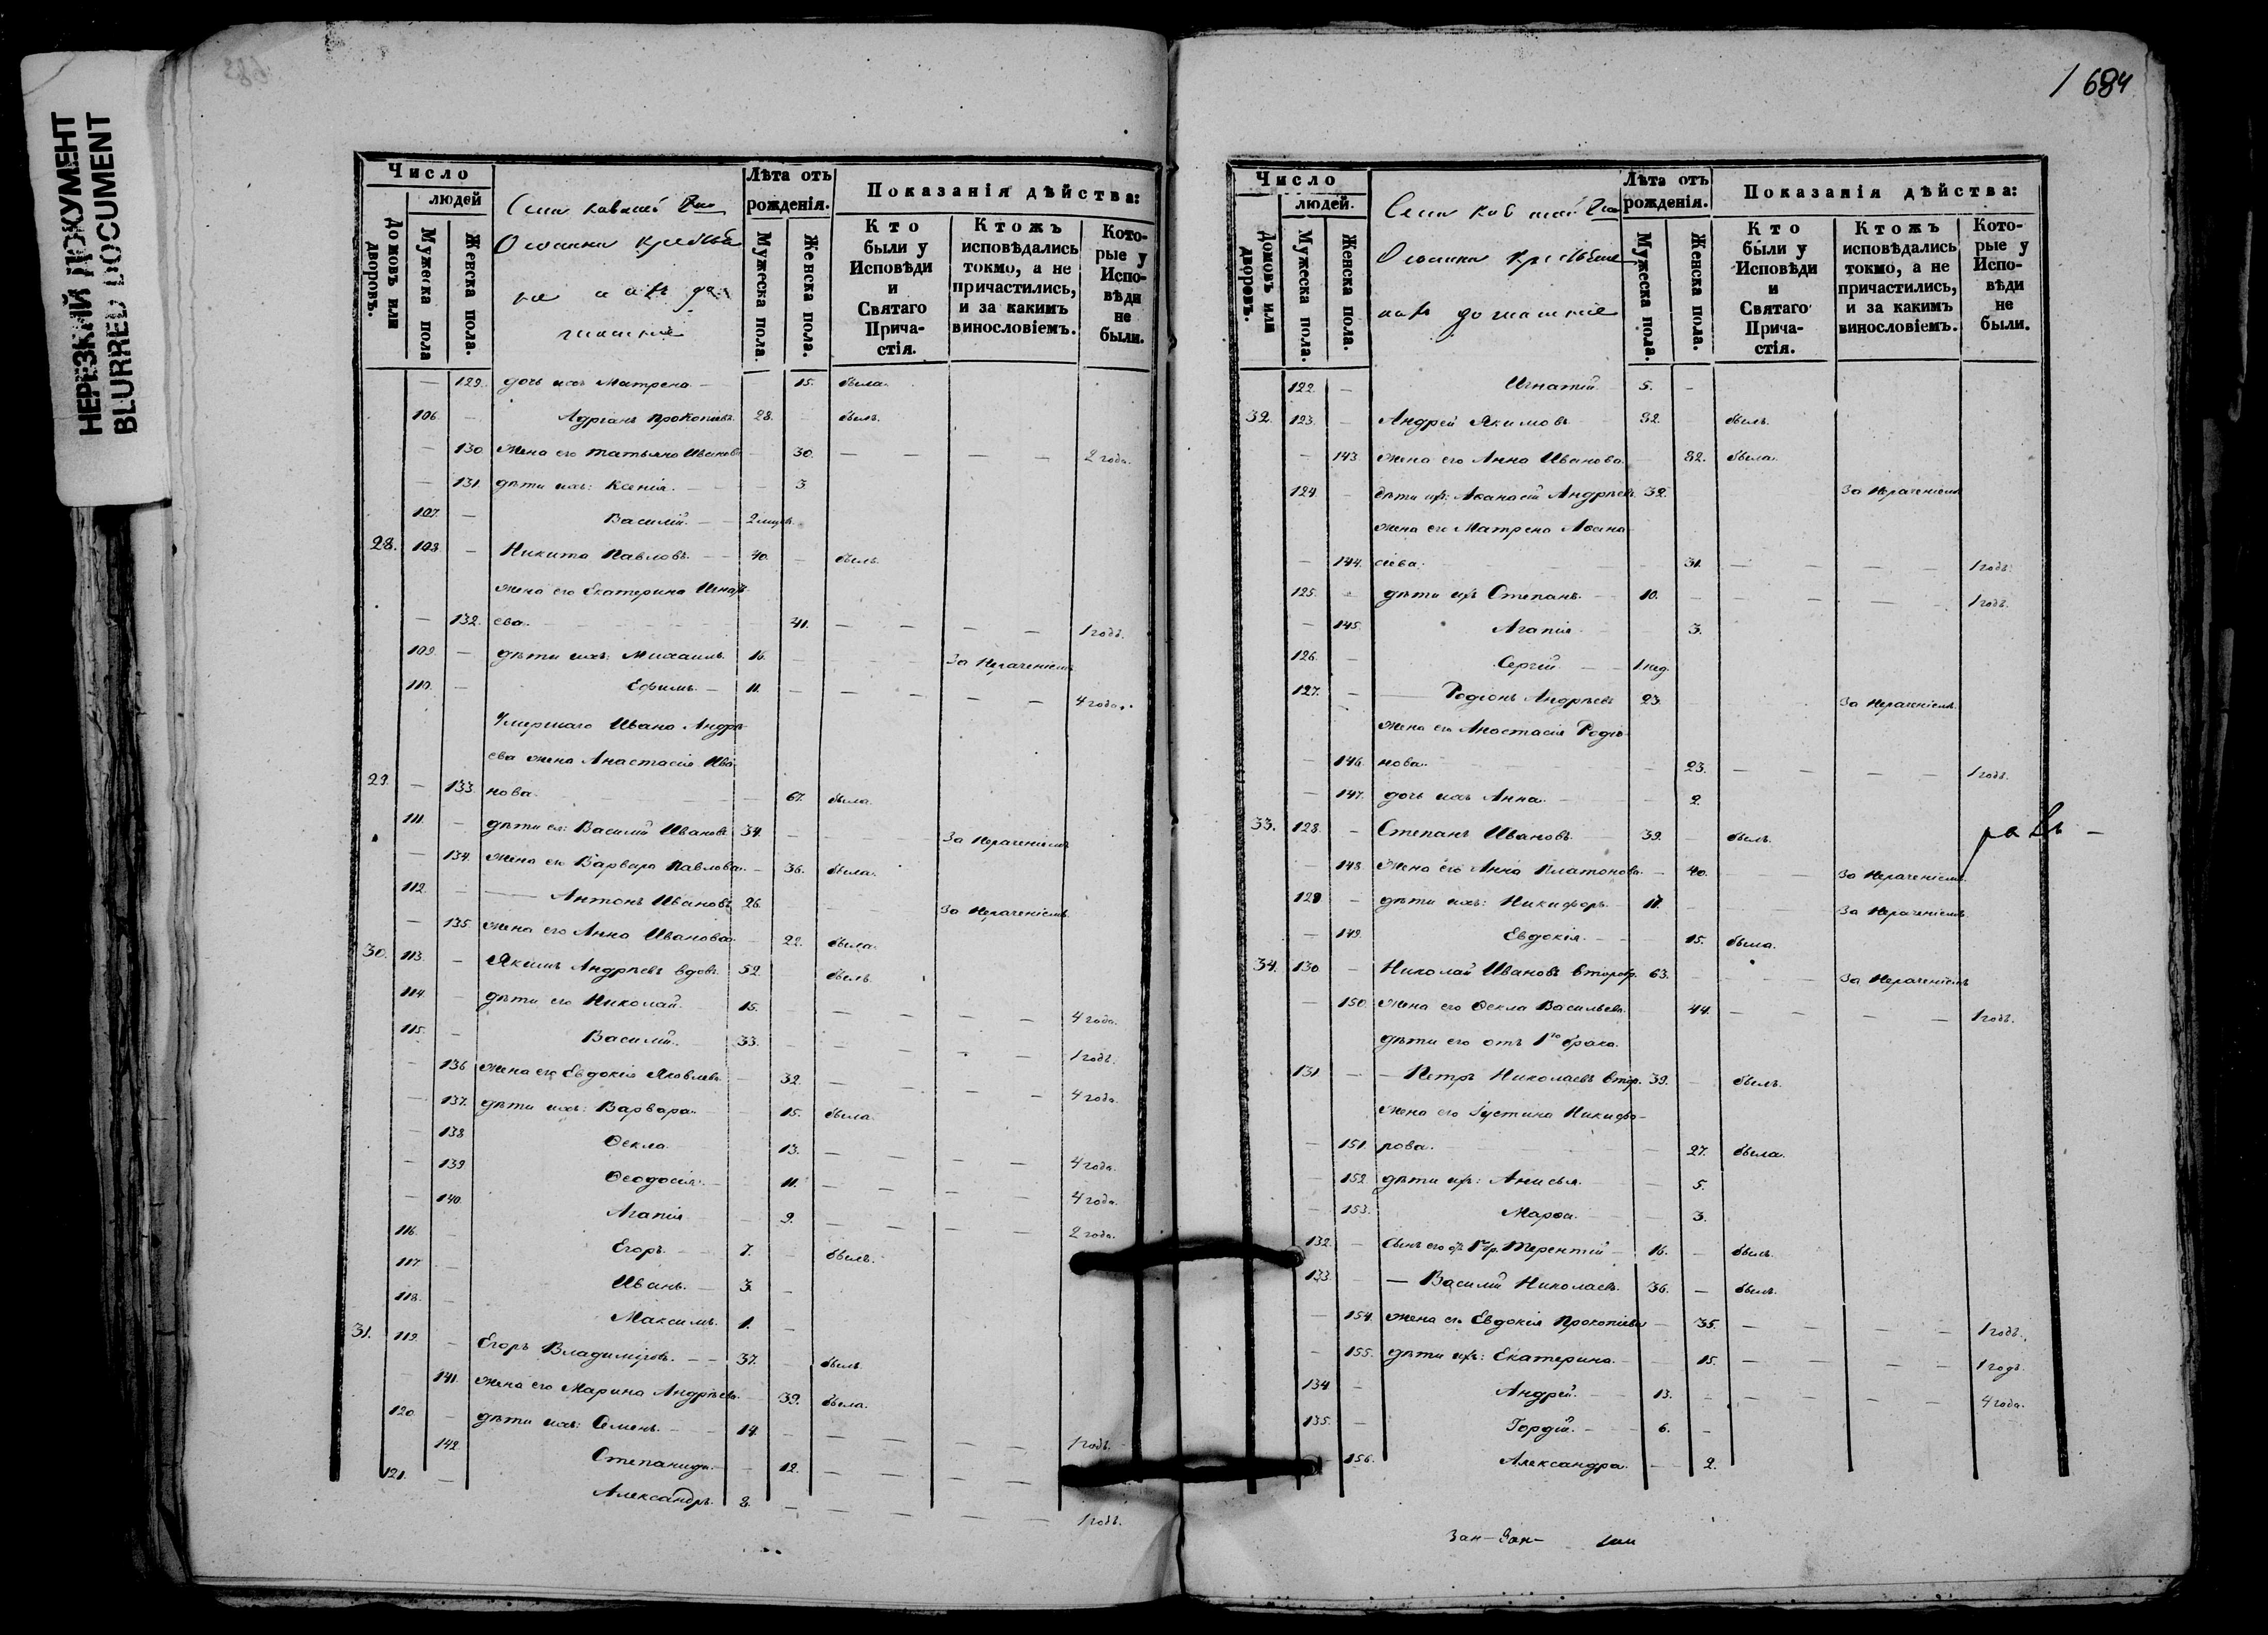 НЕРЕЗКИЙ ДОКУМЕНТ
BLURRED DOCUMENT
Число
людей
Домовъ или дворовъ.
Мужеска пола
Женска пола.
Лѣта отъ рожденія.
Мужеска пола.
Женска пола.
Показанія дѣйства:
Кто были у Исповѣди и Святаго Прича-стія.
Ктожъ исповѣдались токмо, а не причастились, и за какимъ винословіемъ.
Кото-рые у Испо-вѣди не были.
— 129. дочь ихъ Матрена — 15. была.
106. — Адріанъ Прокопіевъ. 28. былъ.
— 130 жена его Татьяна Иванова 30. — — — — 2 года.
— 131. дѣти ихъ: Ксенія. — 3
107. — Василій. — 2 мѣся.
28. 108. — Никита Павловъ. — 40. — былъ.
жена его Екатерина Игнать-
— 132. ева. 41. — — — — 1 годъ.
109. — дѣти ихъ: Михаилъ. 16. — За Нераченіемъ
110. — Ефимъ. — 11. — — — — 4 года.
Умершаго Ивана Андрѣ-
ева жена Анастасія Ива-
29. — 133. нова. — 67. была.
111. — дѣти ея: Василій Ивановъ 34. — За Нераченіемъ
— 134. жена его Варвара Павлова. — 36. была.
112. — — Антонъ Ивановъ 26. — За Нераченіемъ
— 135. жена его Анна Иванова — 22. была.
30. 113. — Якимъ Андрѣевъ вдовъ. 52. былъ.
114. — дѣти его Николай. 15. — — — — 4 года.
115. — Василій. 33. — — — — 1 годъ.
— 136 жена его Евдокія Яковлева. — 32. — — — — 4 года.
— 137. дѣти ихъ: Варвара. 15. была
— 138 Ѳекла. 13. — — — — 4 года.
— 139. Ѳеодосія. — 11. — — — — 4 года.
— 140. Агапія 9. — — — — 2 года.
116. — Егоръ. — 7. — былъ.
117. — Иванъ. — 3. —
118. — Максимъ. 1. —
31. 119. — Егоръ Владиміровъ. — 37. былъ.
— 141. жена его Марина Андрѣева. — 39. была.
120. — дѣти ихъ: Семенъ. — 14. — — — — 1 годъ.
142. Степанида. — 12. — — — — —
121. — Александръ. 8. — — — — 1 годъ.
1 684
Число
людей.
Домовъ или дворовъ.
Мужеска пола.
Женска пола.
Лѣта отъ рожденія.
Мужеска пола.
Женска пола.
Показанія дѣйства:
Кто были у Исповѣди и Святаго Прича-стія.
Ктожъ исповѣдались токмо, а не причастились, и за какимъ винословіемъ.
Кото-рые у Испо-вѣди не были.
122. — Игнатій. 5. —
32. 123. — Андрей Якимовъ 82. былъ.
— 143. жена его Анна Иванова. — 82. была.
124. — дѣти ихъ: Аѳанасій Андрѣевъ. 32. За Нераченіемъ
жена его Матрена Аѳана-
— 144. сіева. — 31. — — — — 1 годъ.
125. — дѣти ихъ Степанъ. — 10. — — — — 1 годъ.
— 145. Агапія 3.
126. — Сергій — 1 нед.
127. — — Родіонъ Андрѣевъ 23. За Нераченіемъ.
жена его Анастасія Родіо-
— 146. нова. — 23. — — — — 1 годъ.
— 147. дочь ихъ Анна. — 2.
33. 128. — Степанъ Ивановъ. 39. — былъ.
— 148. жена его Анна Платонова. — 40. — За Нераченіемъ.
129 — дѣти ихъ: Никифоръ. 17. — За Нераченіемъ
— 149. Евдокія. — 15. была.
34. 130 — Николай Ивановъ второбр. 63. — За Нераченіемъ
— 150. жена его Ѳекла Васильева. 44. — — — — 1 годъ.
дѣти его отъ 1го брака.
131 — — Петръ Николаевъ втор. 39. — былъ.
жена его Іустина Никифо-
— 151. рова. — 27. была.
— 152. дѣти ихъ: Анисья. — 5.
— 153. Марѳа. — 3.
132. — сынъ его отъ 1го бр. Терентій — 16. — былъ.
133. — Василій Николаевъ. 36. — былъ.
— 154. жена его Евдокія Прокопіева — 35. — — — — 1 годъ.
— 155. дѣти ихъ: Екатерина. 15. — — — — 1 годъ.
134 — Андрей. — 13. — — — — 4 года.
135. — Гордій. — 6. —
156. Александра. — 2.